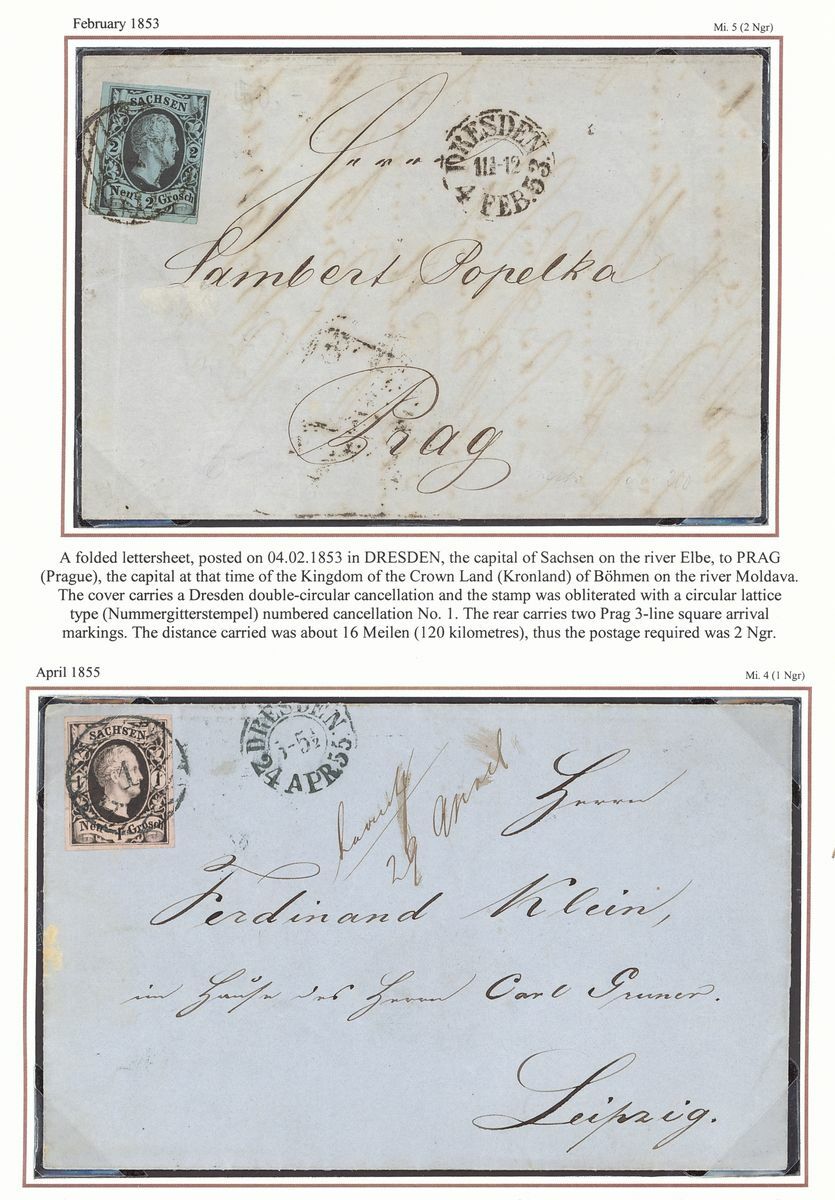 February 1853
Mi. 5 (2 Ngr)
SACHSEN
2 2
Neu 2 Grosch
DRESDEN
III-12
4 FEB. 53
Herrn
Lambert Popelka
Prag
A folded lettersheet, posted on 04.02.1853 in DRESDEN, the capital of Sachsen on the river Elbe, to PRAG
(Prague), the capital at that time of the Kingdom of the Crown Land (Kronland) of Böhmen on the river Moldava.
The cover carries a Dresden double-circular cancellation and the stamp was obliterated with a circular lattice
type (Nummergitterstempel) numbered cancellation No. 1. The rear carries two Prag 3-line square arrival
markings. The distance carried was about 16 Meilen (120 kilometres), thus the postage required was 2 Ngr.
April 1855
Mi. 4 (1 Ngr)
SACHSEN
1
Neu 1 Grosch
DRESDEN.
24 APR 55
29 April
Herrn
Ferdinand Klein,
im Hause des Herrn Carl Gruner.
Leipzig.